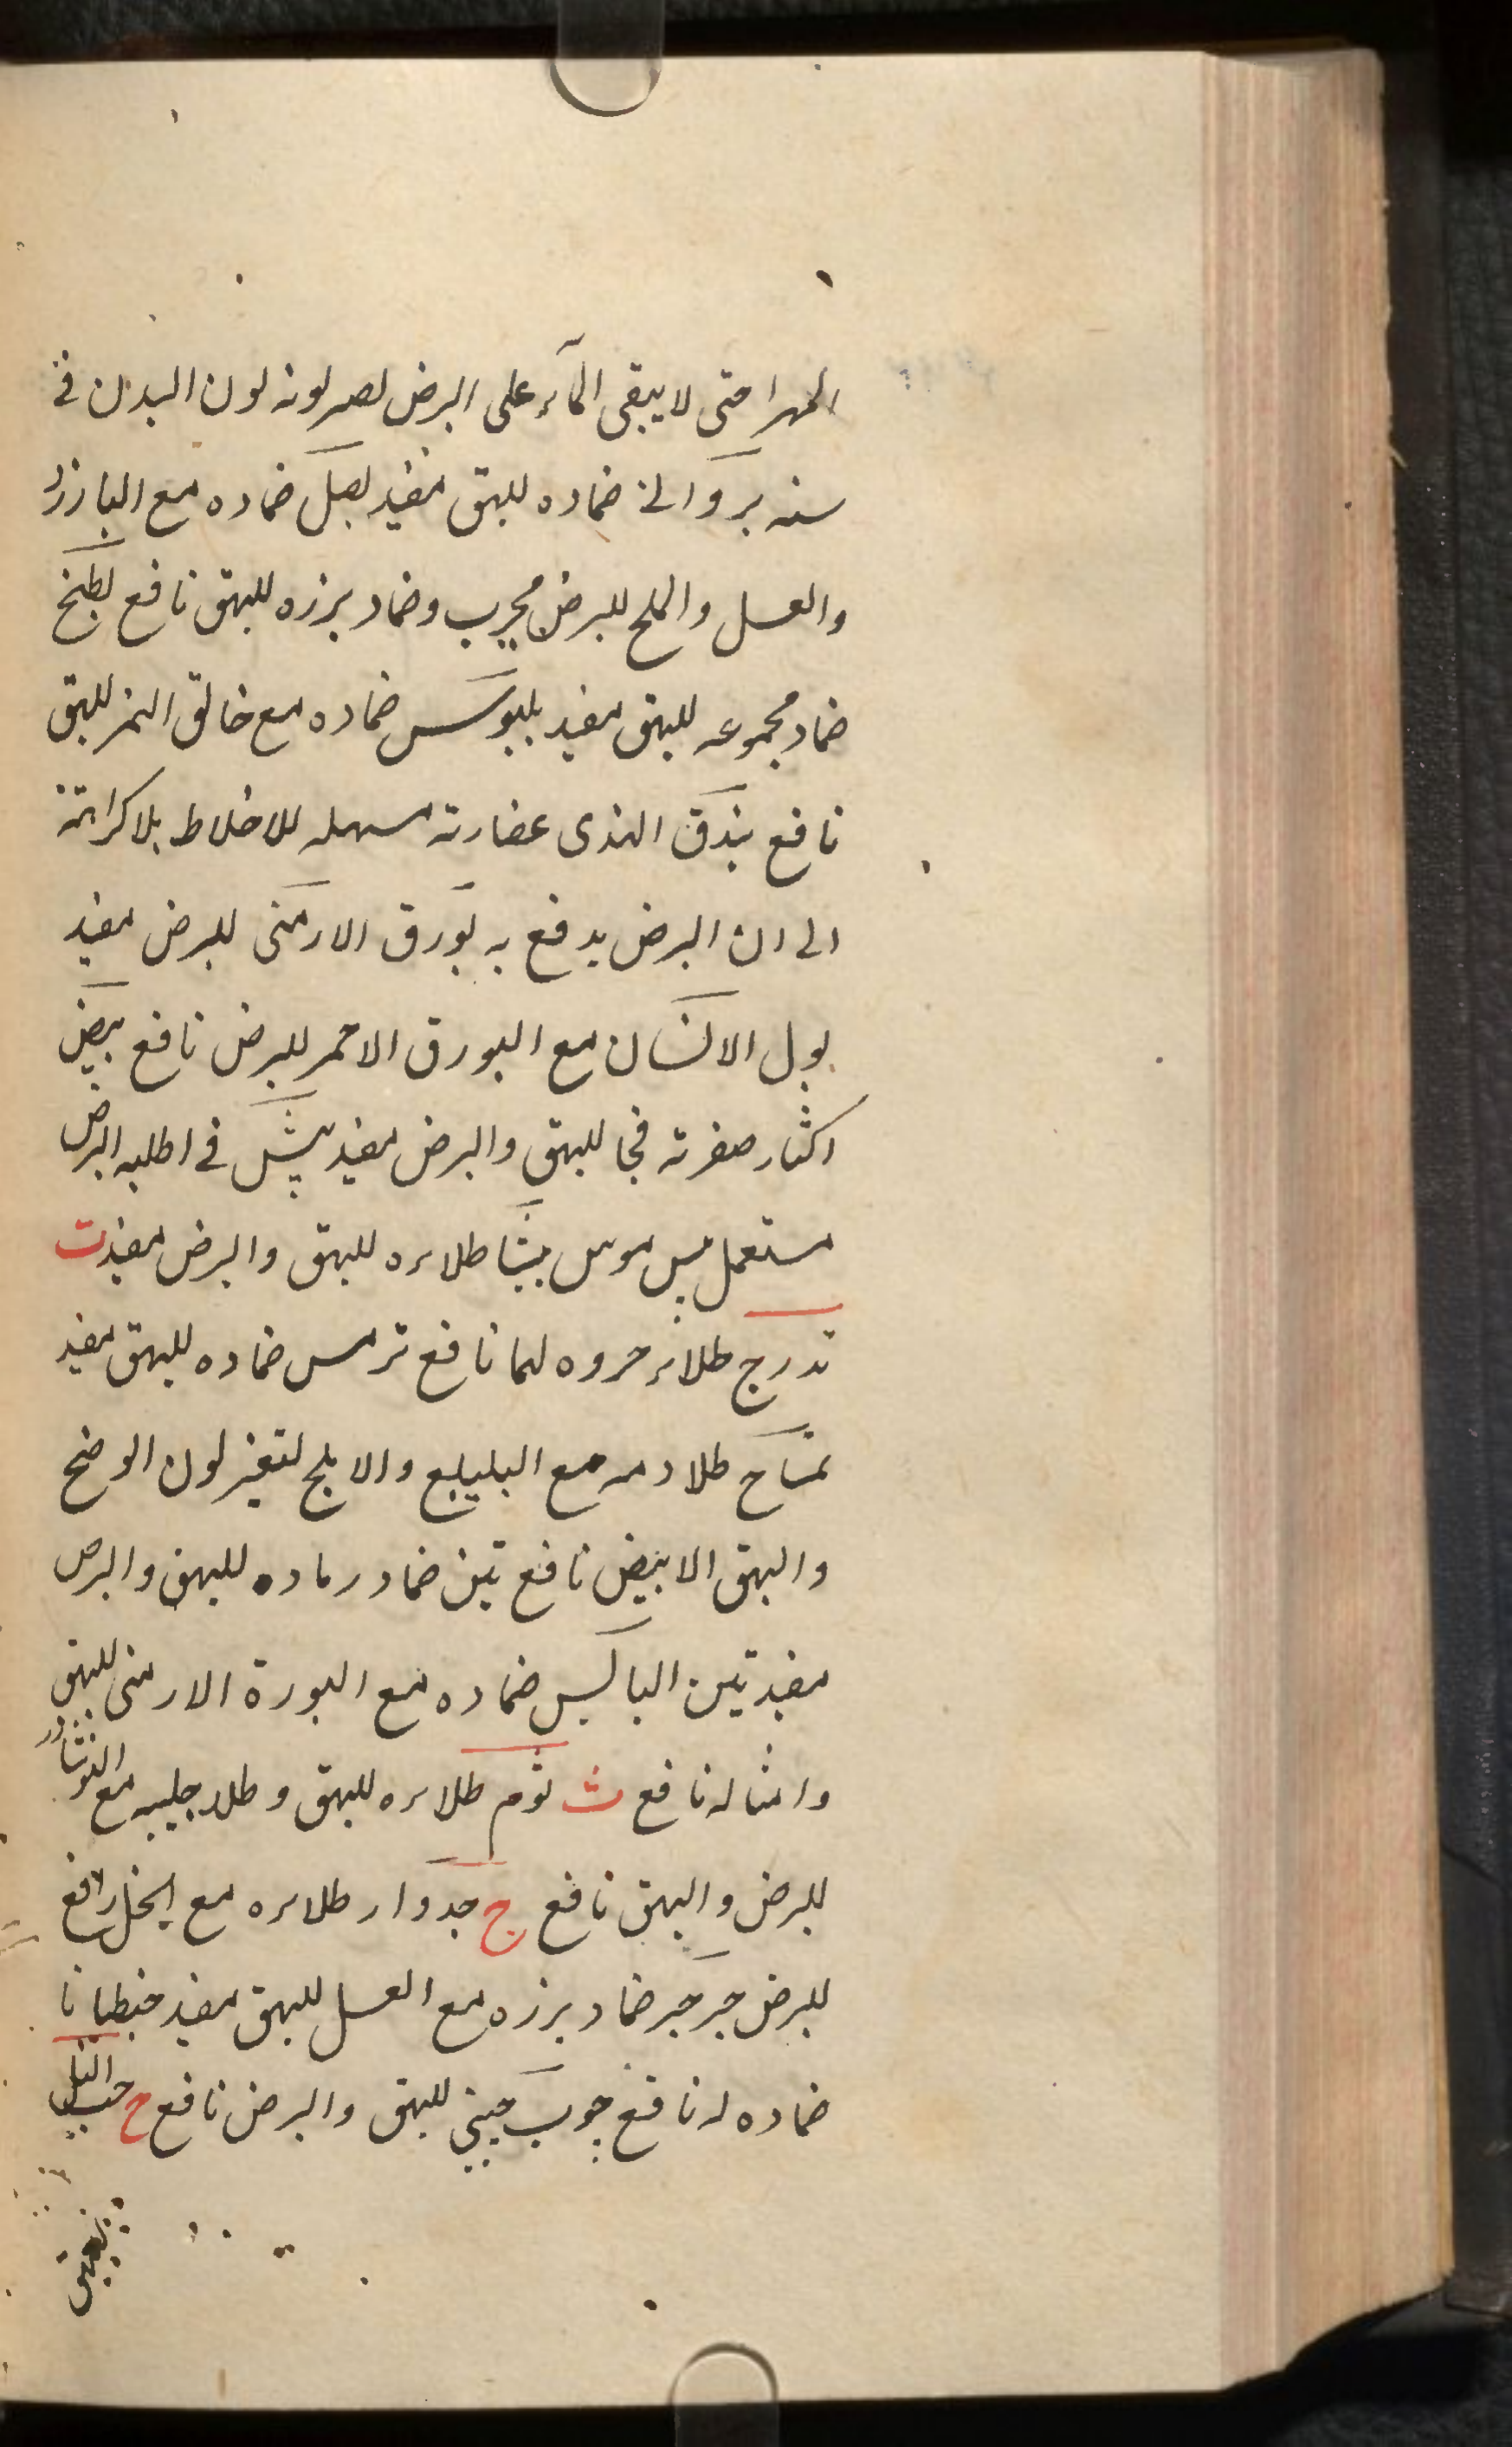 المهرا حتى لا يبقى المآء على البرص لصر لونه لون البدن فى
سنه بروانى ضماده للبهق مفيد بصل ضماده مع البارزد
والعسل والملح للبرص مجرب وضماد بزره للبهق نافع بطيخ
ضماد مجموعه للبهق مفيد بلبوس ضماده مع خالق النمر للبهق
نافع بندق الهندى عضارته مسهله للاخلاط بلاكراهة
الى ان البرص يدفع به بورق الارمنى للبرص مفيد
بول الانسان مع البورق الاحمر للبرص نافع بيض
اكثار صفرته للبهق والبرص مفيد بيش فى اطليه البرص
مستعمل بيش موش بيشا طلاءه للبهق والبرص مفيد ت
تدرج طلاء لهما نافع ترمس ضماده للبهق مفيد
تمساح طلا دمه مع البليلج والابلج لتغير لون الوضح
والبهق الابيض نافع تين ضماد رماده للبهق والبرص
مفيد تين اليابس ضماده مع البورة الارمنى للبهق
وامثاله نافع ث ثوم طلاءه للبهق وطلا مع النوشادر
للبرص والبهق نافع ج جدوار طلاءه مع الخل رافع
للبرص جرجير ضماد بزره مع العسل للبهق مفيد جنطيانا
ضماده له نافع چوب چينى للبهق والبرص نافع ح حب النيل
للبهق